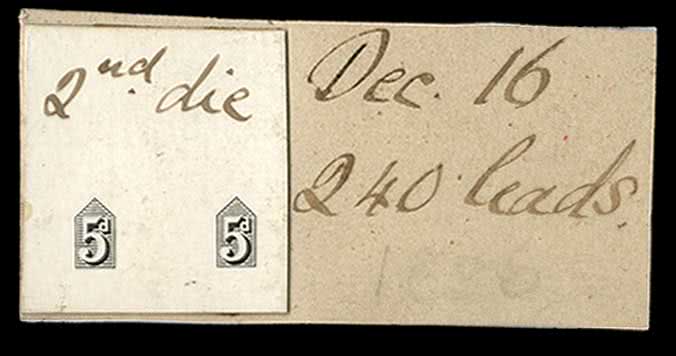 2nd die
5d 5d
Dec. 16
240 leads.